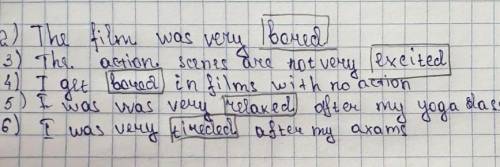 2) The film was very bored
3) The action scenes are not very excited
4) I get bored in films with no action
5) I was was very relaxed after my yoga class
6) I was very tireded after my axams